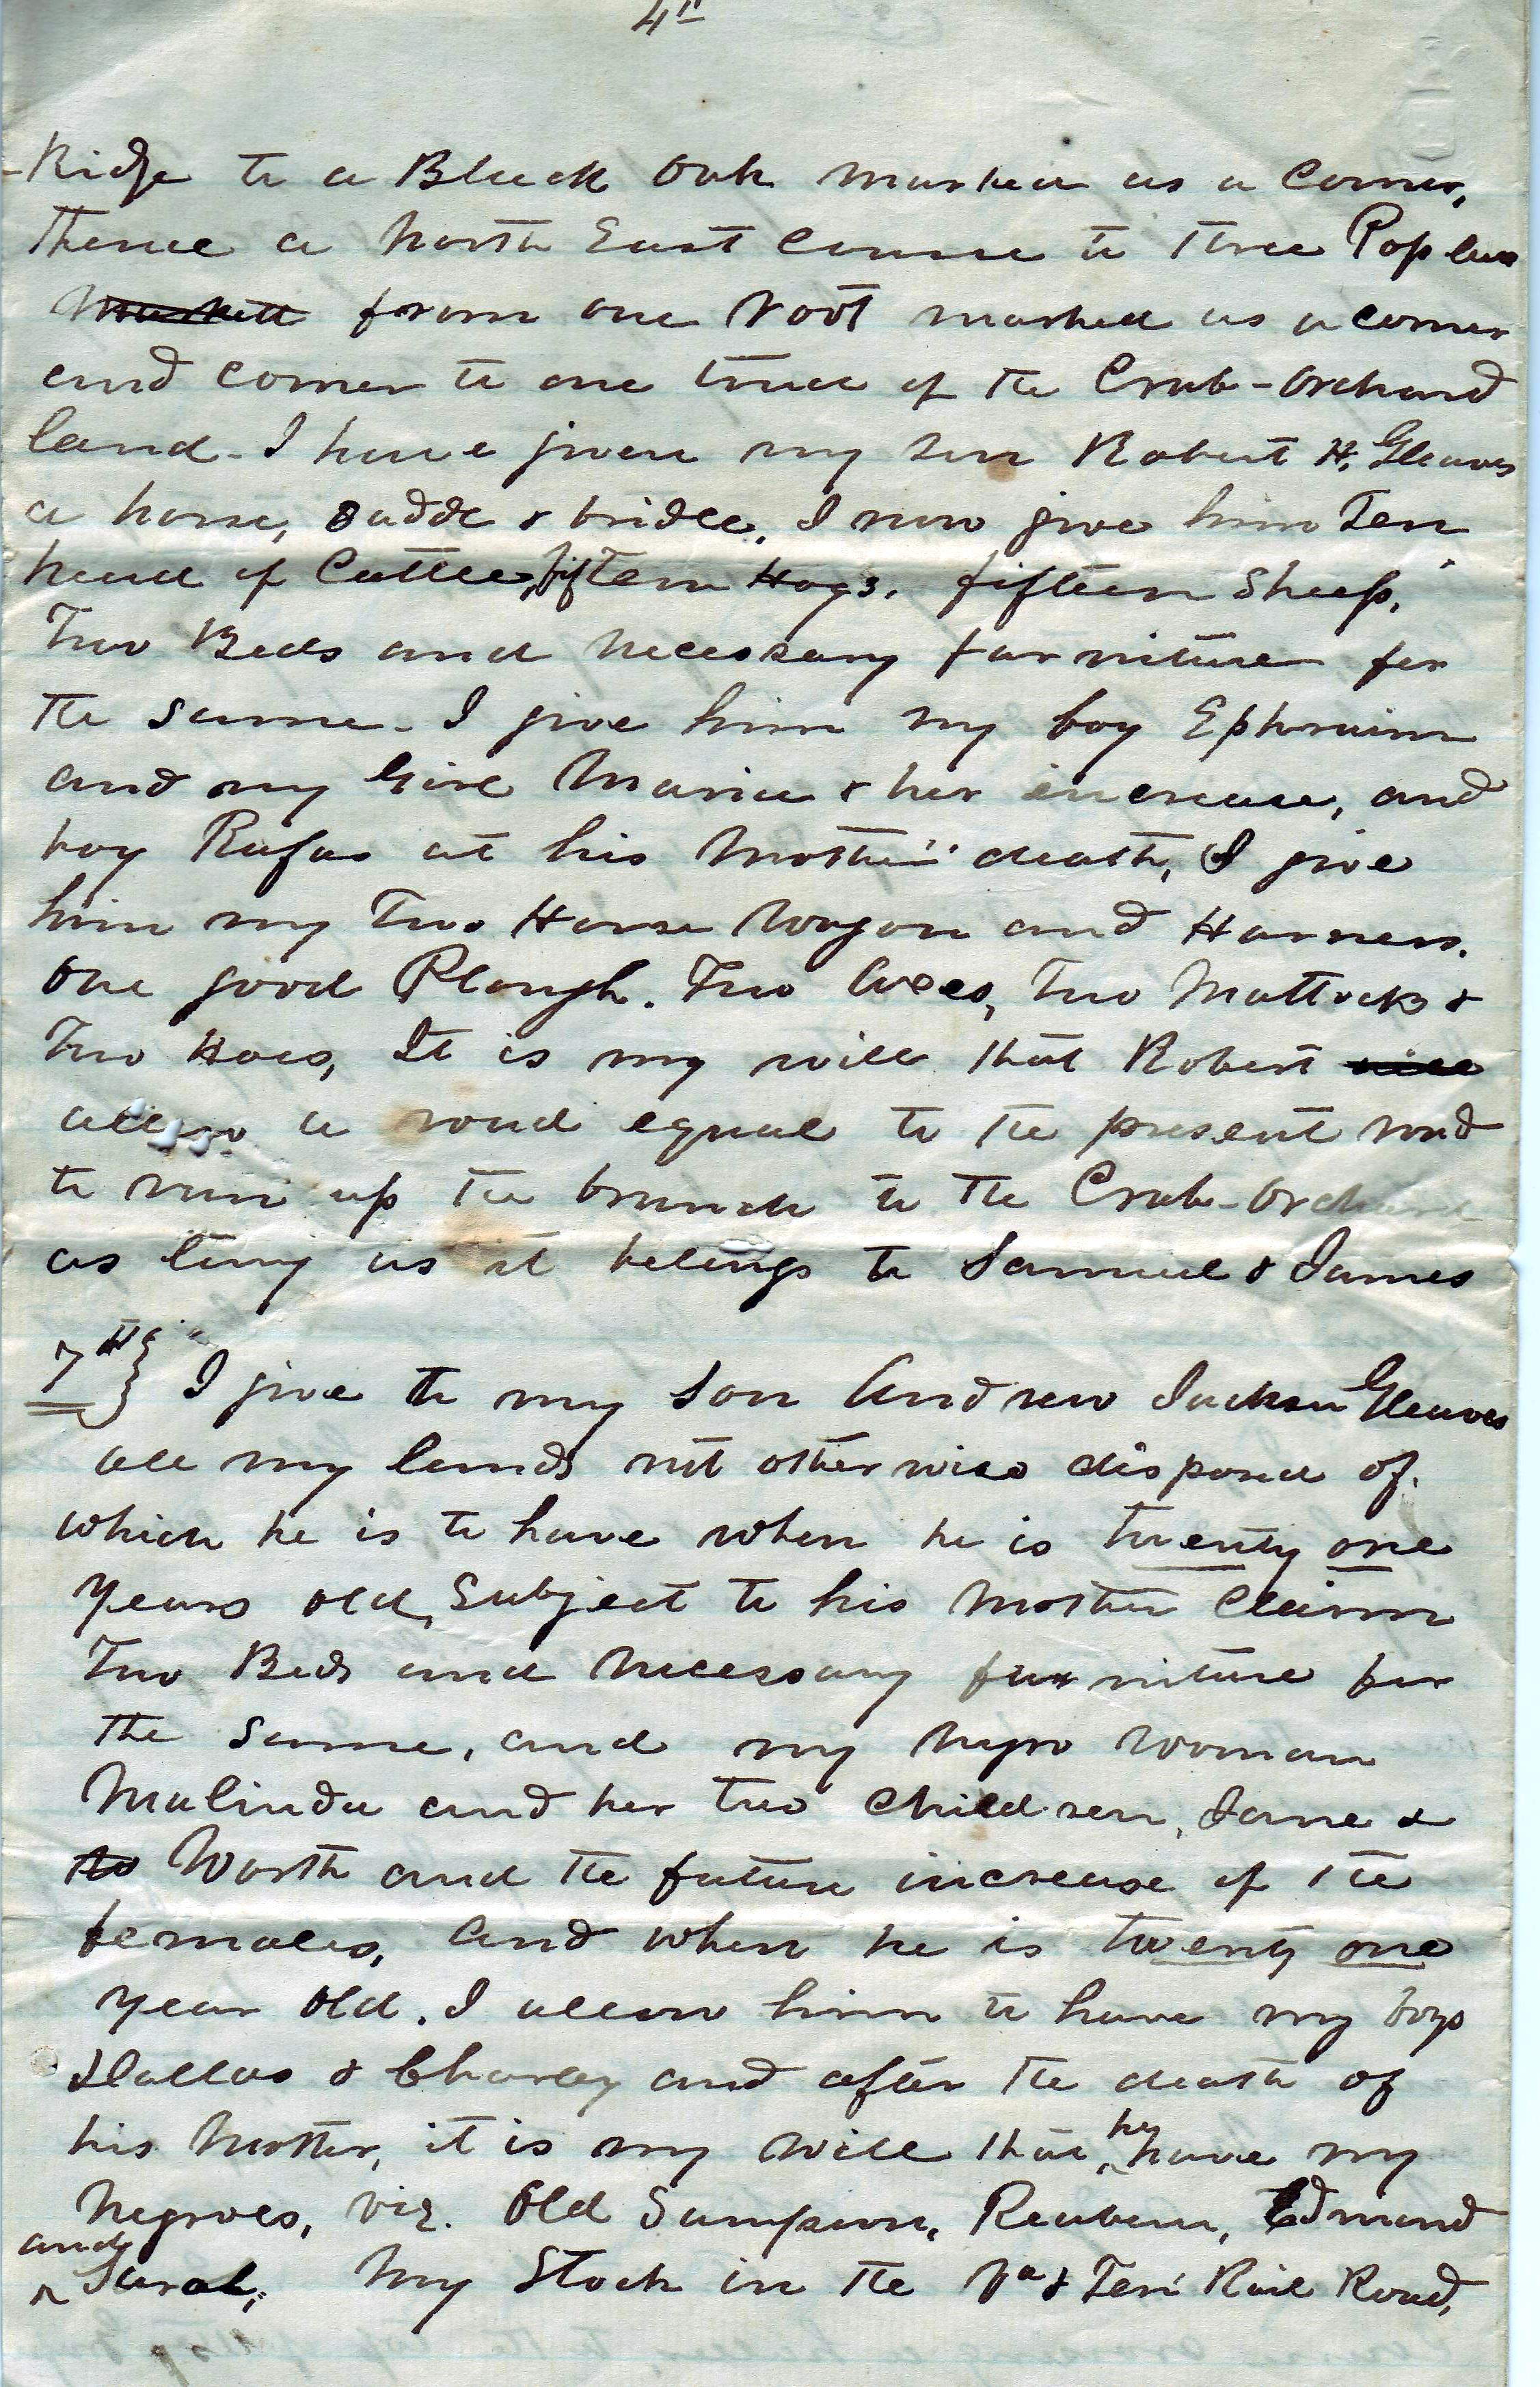 4th
Ridge to a Black Oak marked as a corner,
Thence a North East Course to three Poplars
Marked from one root marked as a corner
and corner to one tract of the Crab-Orchard
land. I have given my son Robert H. Gleaves
a horse, Saddle & bridle. I now give him Ten
head of Cattle, fifteen Hogs, fifteen Sheep,
Two Beds and necessary furniture for
the same. I give him my boy Ephraim
and my Girl Maria & her increase, and
boy Rufus at his Mother's death, I give
him my Two Horse Wagon and Harness.
One good Plough. Two Axes, Two Mattocks &
Two Hoes, It is my will that Robert will
allow a road equal to the present road
to run up the branch to the Crab-Orchard
as long as it belongs to Samuel & James
7th} I give to my Son Andrew Jackson Gleaves
all my lands not otherwise disposed of.
which he is to have when he is twenty one
Years old, Subject to his Mother Claim
Two Beds and necessary furniture for
the same, and my negro woman
Malinda and her two Children, Jane &
to Worth and the future increase of the
females, and when he is twenty one
year old. I allow him to have my boys
Dallas & Charley and after the death of
his Mother, it is my will that he have my
Negroes, viz. Old Sampson, Reuben, Edmond
and Sarah, My Stock in the Va & Ten Rail Road,